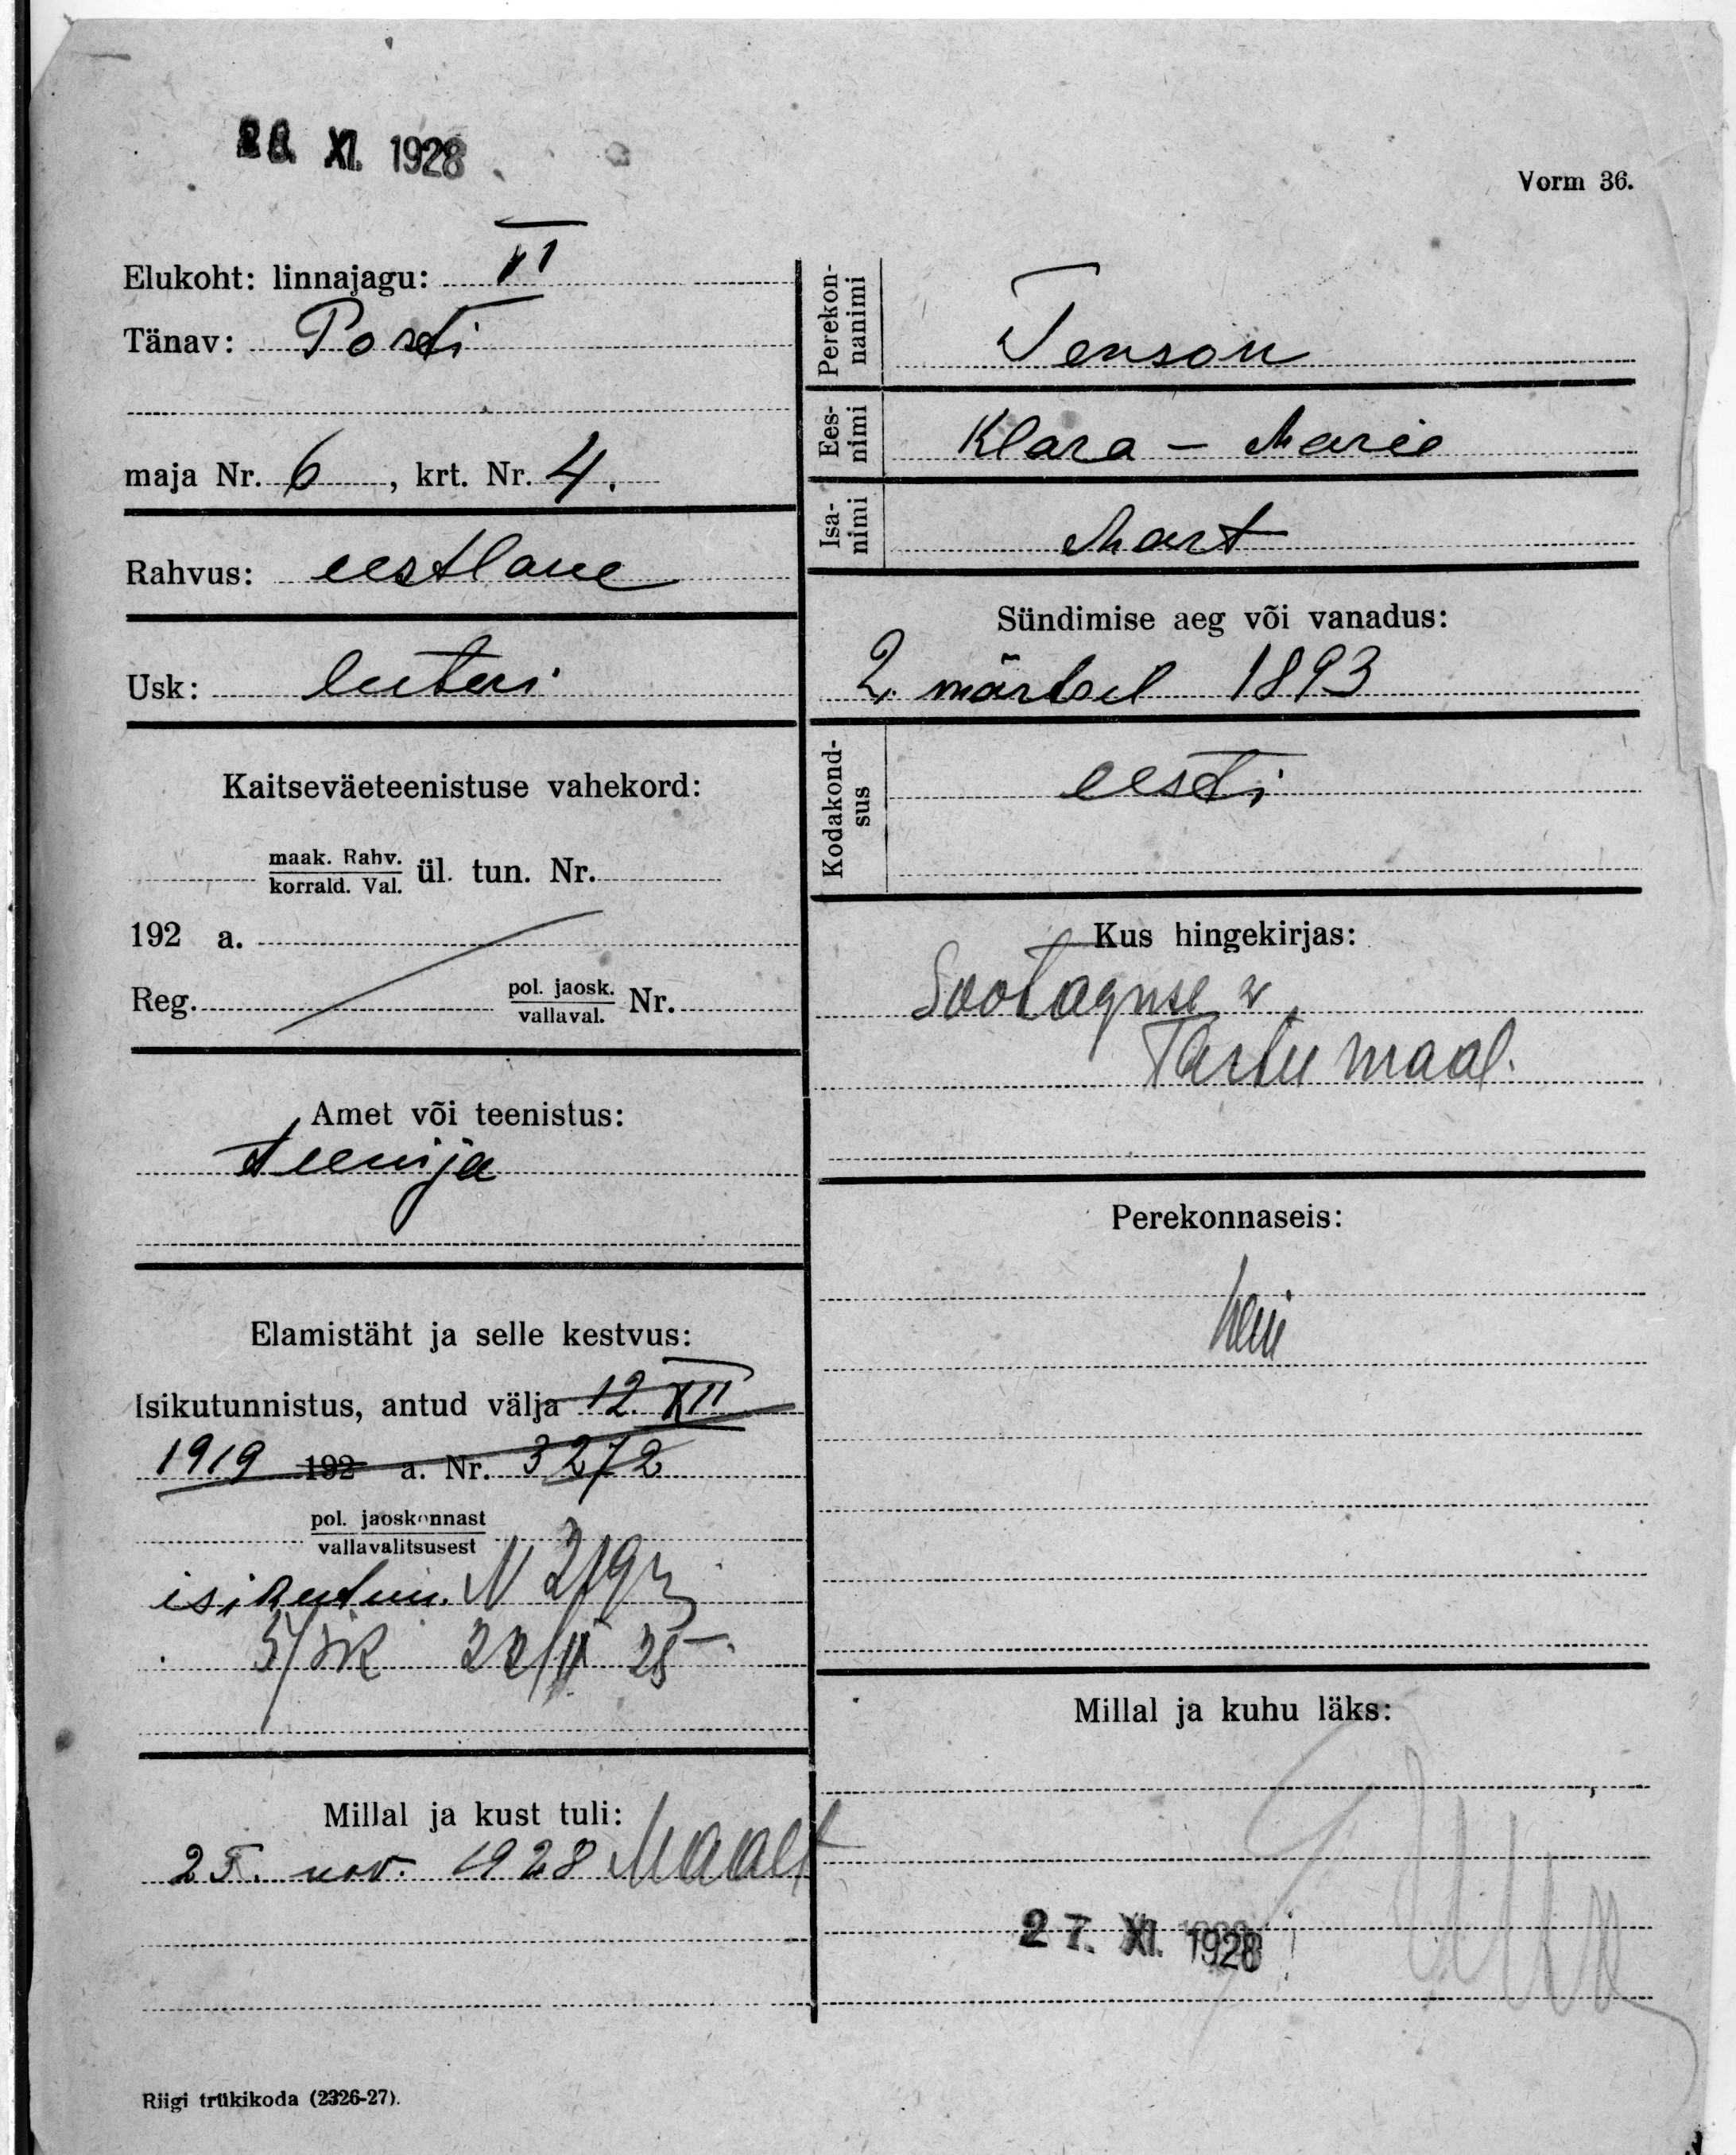 28. XI. 1928
Vorm 36.
Elukoht: linnajagu: VI
Tänav: Posti
maja Nr. 6, krt. Nr. 4.
Rahvus: eestlane
Usk: luteri
Kaitseväeteenistuse vahekord:
maak. Rahv.
korrald. Val. ül. tun. Nr.
192 a.
Reg. pol. jaosk.
vallaval. Nr.
Amet või teenistus:
teenija
Elamistäht ja selle kestvus:
Isikutunnistus, antud välja 12. XII
1919 192 a. Nr. 3272
pol. jaoskonnast
vallavalitsusest
isikutun. N
Millal ja kust tuli:
25. nov. 1928 Maalt
Perekonnanimi
Tenson
Eesnimi
Klara - Marie
Isanimi
Mart
Sündimise aeg või vanadus:
2. märtsil 1893
Kodakondsus
eesti
Kus hingekirjas:
Sootaguse v
Tartumaal.
Perekonnaseis:
Millal ja kuhu läks:
27. XI. 1928
Riigi trükikoda (2326-27).